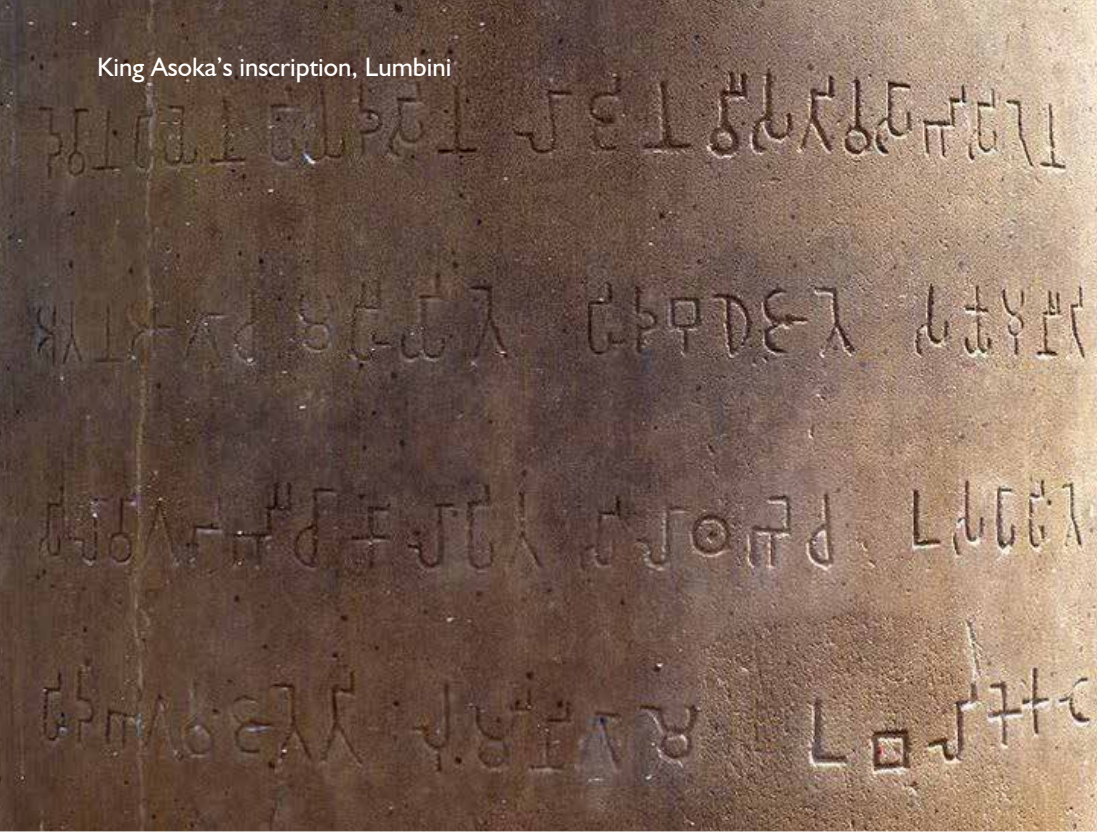 King Asoka's inscription, Lumbini
𑀤𑁂𑀯𑀸𑀦𑀧𑀺𑀬𑁂𑀦 𑀧𑀺𑀬𑀤𑀲𑀺𑀦 𑀮𑀸𑀚𑀺𑀦 𑀯𑀻𑀲𑀢𑀺𑀯𑀲𑀸𑀪𑀺𑀲𑀺𑀢𑁂𑀦
𑀅𑀢𑀦𑀆𑀕𑀸𑀘 𑀫𑀳𑀻𑀬𑀺𑀢𑁂 𑀳𑀺𑀤𑀩𑀼𑀥𑁂𑀚𑀸𑀢𑁂 𑀲𑀓𑁆𑀬𑀫𑀼𑀦𑀻𑀢𑀺
𑀲𑀺𑀮𑀸𑀯𑀺𑀕𑀟𑀪𑀻𑀘𑀸𑀓𑀸𑀮𑀸𑀧𑀺𑀢 𑀲𑀺𑀮𑀸𑀣𑀪𑁂𑀘 𑀉𑀲𑀧𑀸𑀧𑀺𑀢𑁂
𑀳𑀺𑀤𑀪𑀕𑀯𑀁𑀚𑀸𑀢𑁂𑀢𑀺 𑀮𑀼𑀁𑀫𑀺𑀦𑀺𑀕𑀸𑀫𑁂 𑀉𑀩𑀮𑀺𑀓𑁂𑀓𑀝𑁂